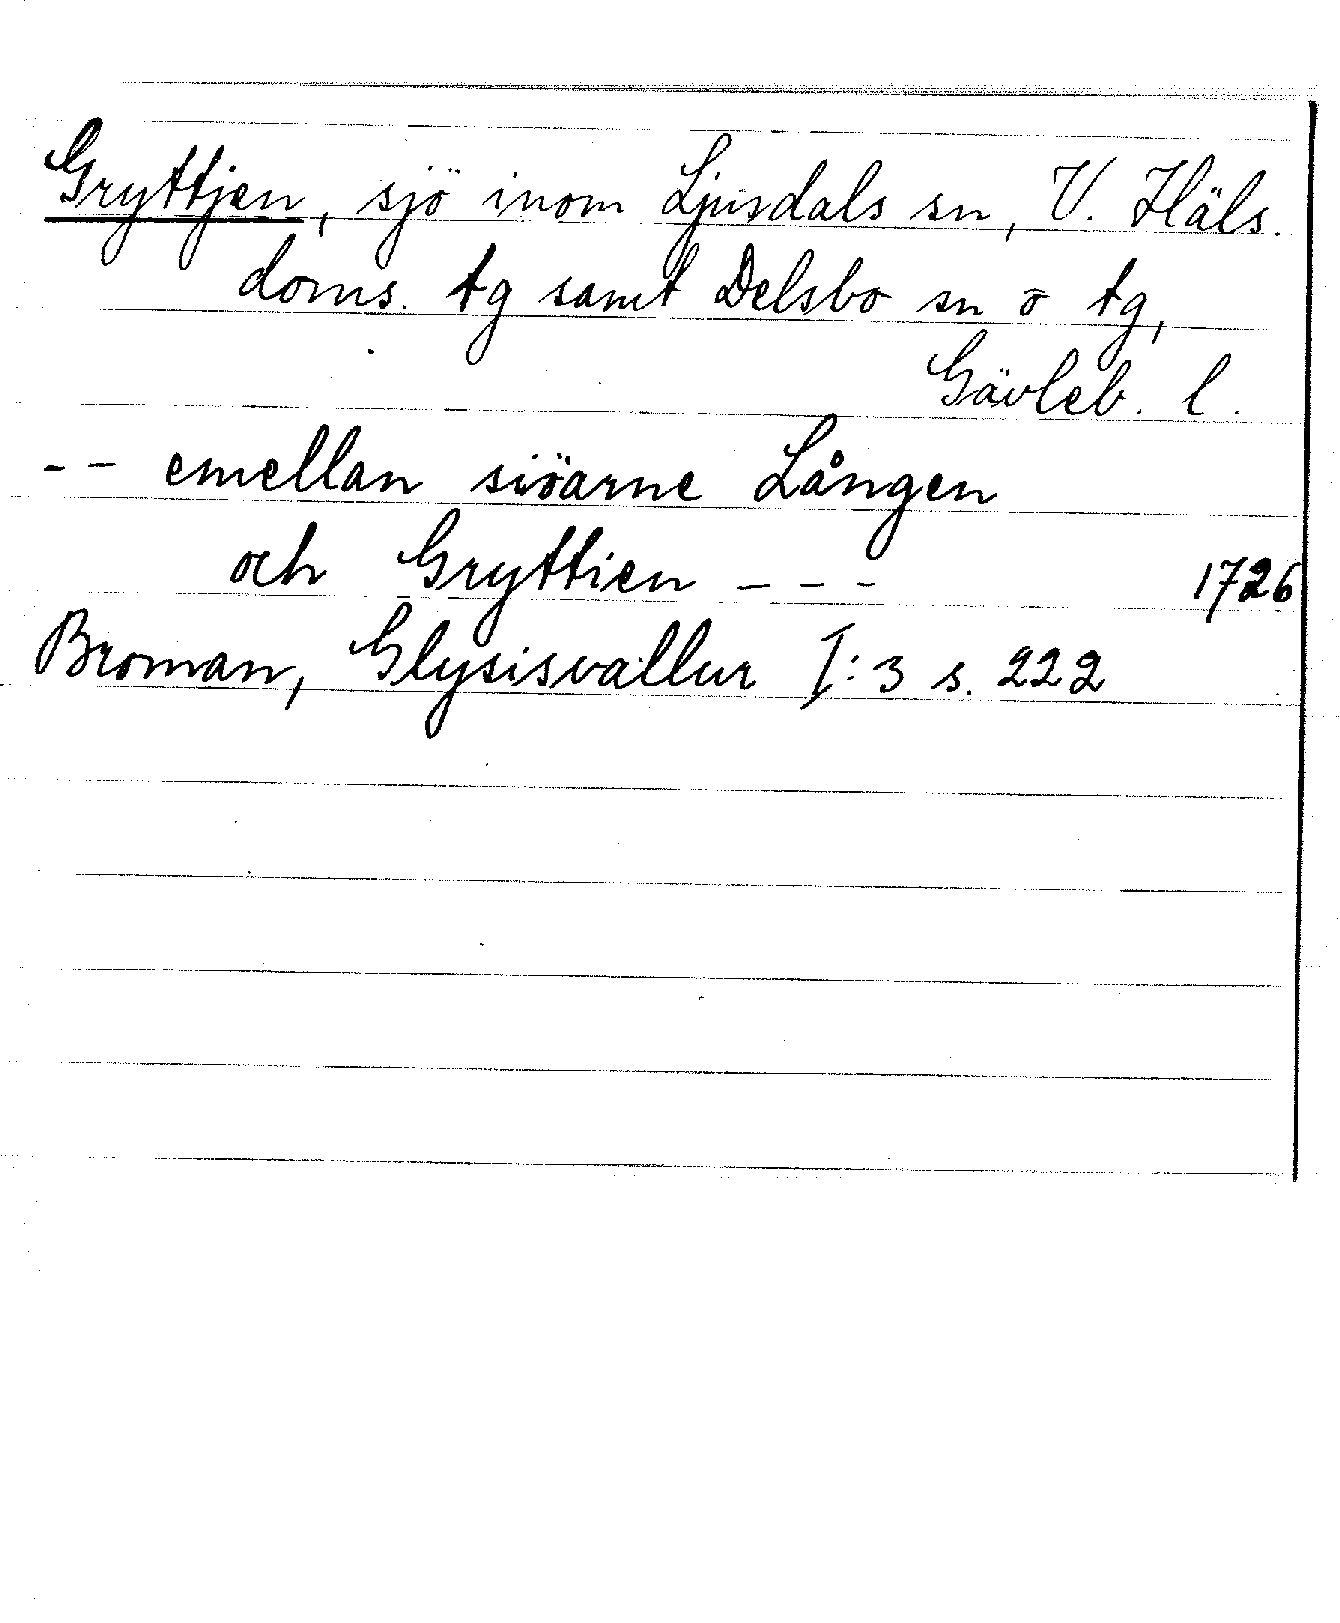 Gryttjen, sjö inom Ljusdals sn, V. Häls.
doms. tg samt Delsbo sn o tg,
Gävleb. l.
-- emellan siöarne Lången
och Gryttien ---
1726
Broman, Glysisvallur I:3 s. 222